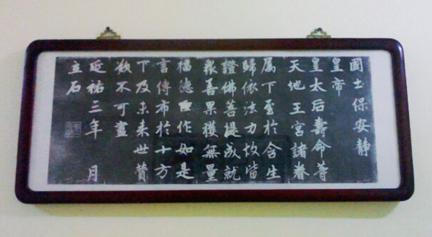 國土保安靜
皇帝
皇太后壽命等
天地王宮諸眷
属下至於含生
歸依法力故皆
證佛菩提成就
衆善果穫無量
福德作如是
言傳布於十方
下及未来世賛
歎不可盡
延祐三年 月
立石